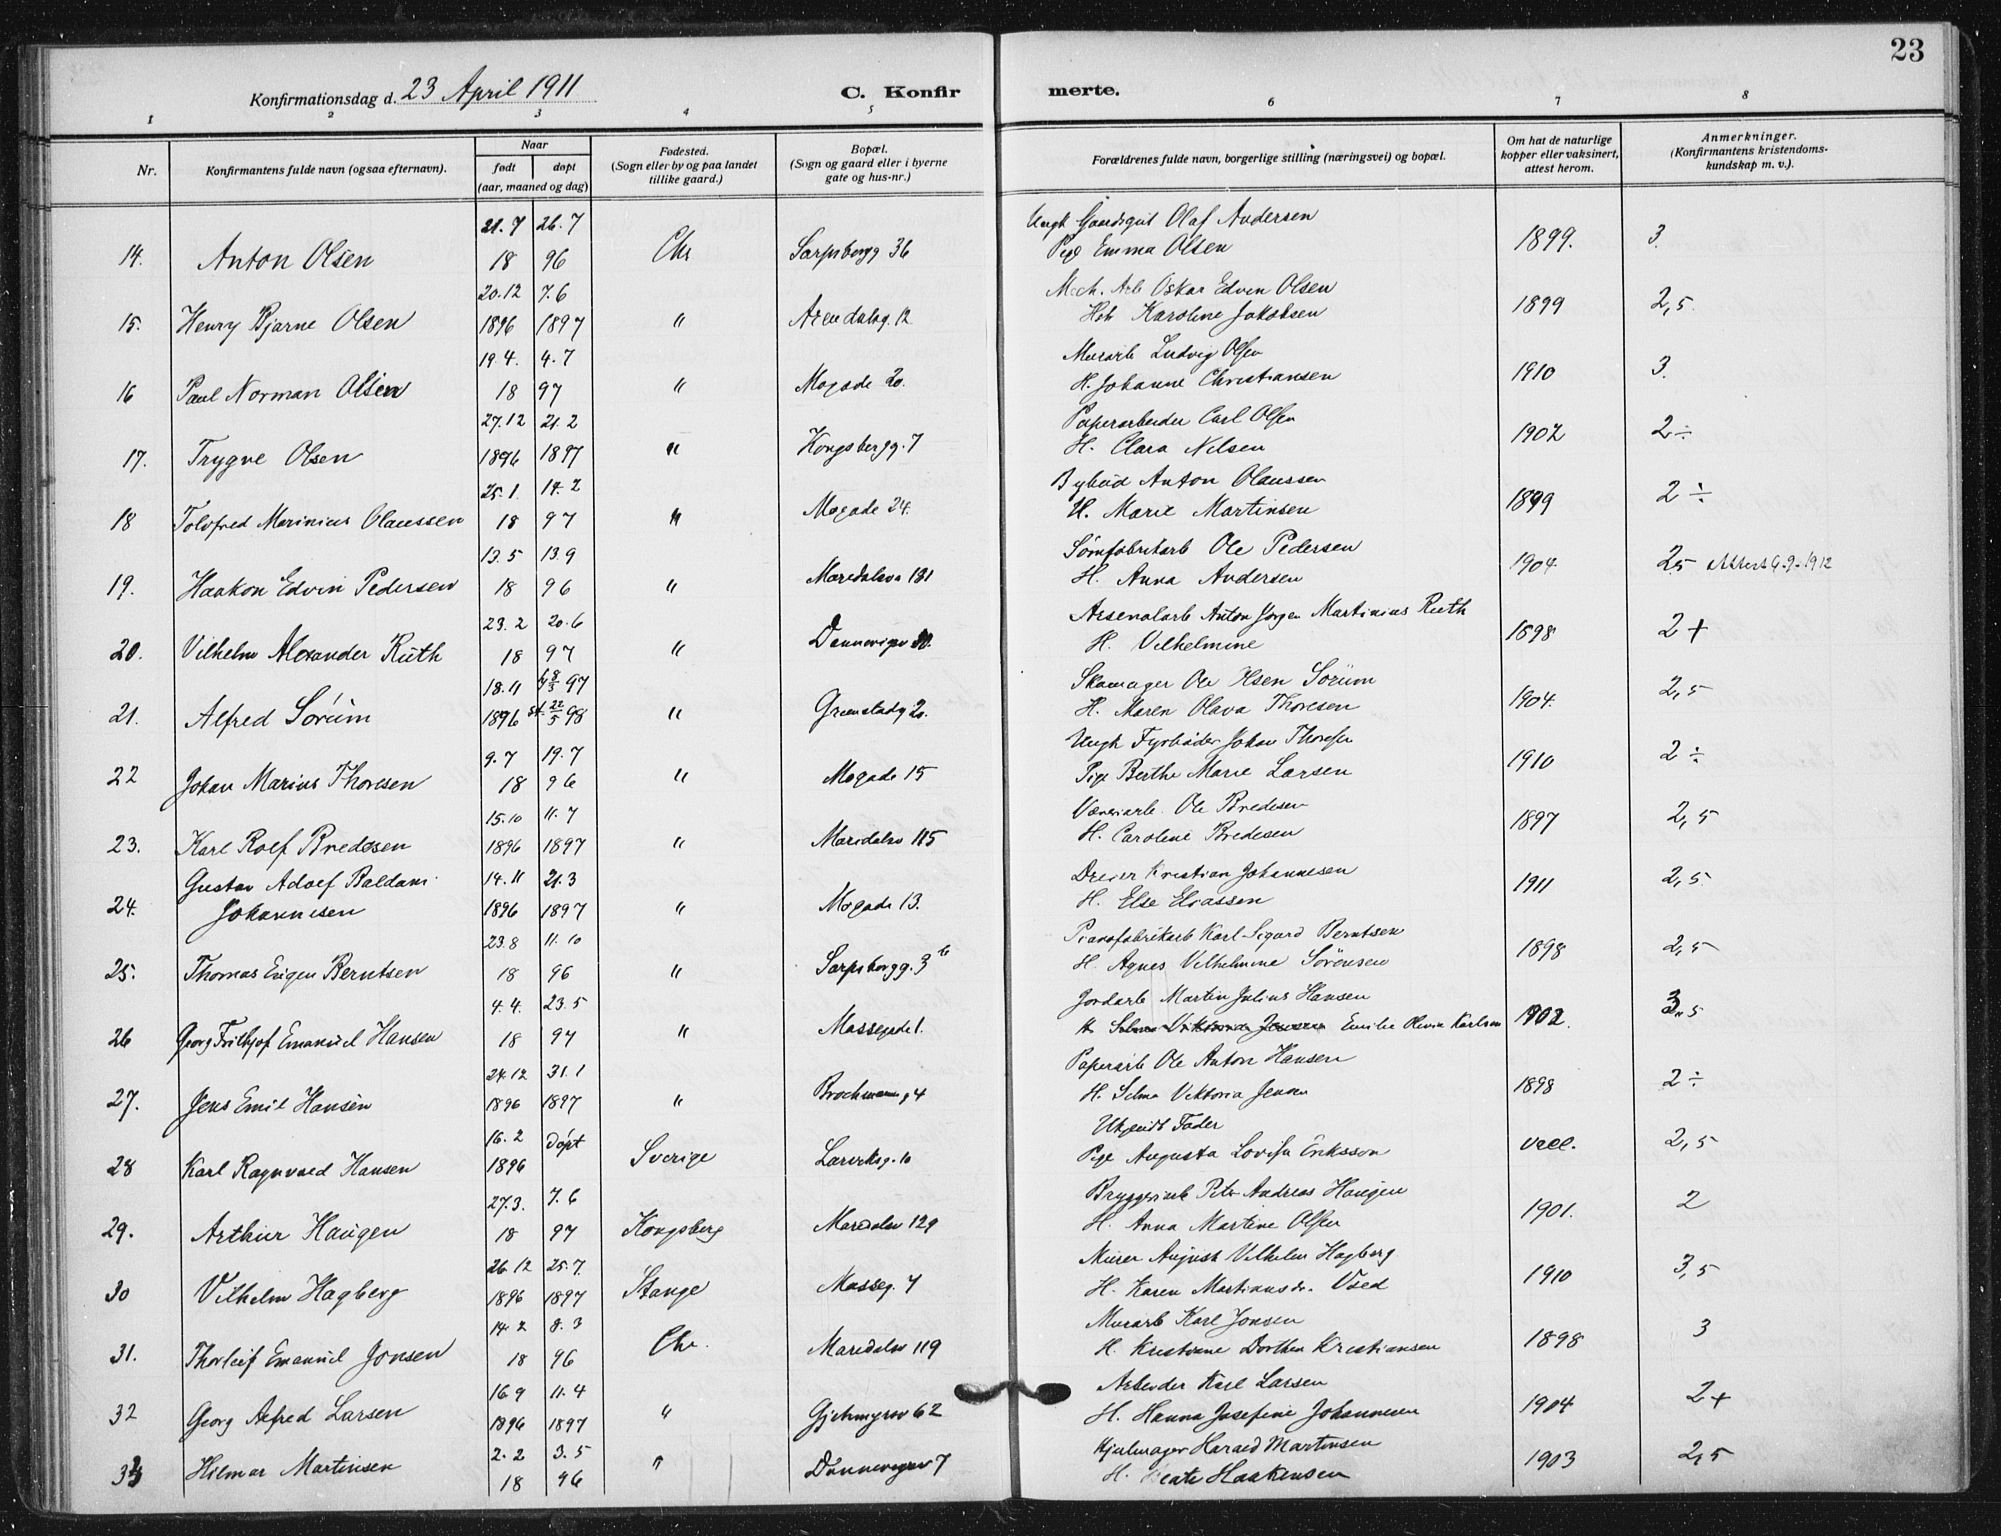 23
Konfirmationsdag d. 23 April 1911 C. Konfir merte.
1 2 3 4 5 6 7 8
Nr. Konfirmantens fulde navn (ogsaa efternavn). Naar født døpt (aar, maaned og dag) Fødested. (Sogn eller by og paa landet tillike gaard.) Bopæl. (Sogn og gaard eller i byerne gate og hus-nr.) Forældrenes fulde navn, borgerlige stilling (næringsvei) og bopæl. Om hat de naturlige kopper eller vaksinert, attest herom. Anmerkninger. (Konfirmantens kristendomskundskap m. v.).
21.7 26.7 Ungk Gaardsgut Olaf Andersen
14. Anton Olsen 18 96 Chr Sarpsborgg 36 Pige Emma Olsen 1899. 3.
20.12 7.6 Mech. Arb Oskar Edvin Olsen
15. Henry Bjarne Olsen 1896 1897 " Arendalsg. 12 Hst Karoline Jakobsen 1899 2,5.
19.4. 4.7 Murarb Ludvig Olsen
16 Paul Norman Olsen 18 97 " Mogade 20. H. Johanne Christiansen 1910 3.
27.12 21.2 Papirarbeider Carl Olsen
17. Trygve Olsen 1896 1897 " Kongsbergg. 7 H. Clara Nilsen 1902 2÷
25.1. 14.2 Bybud Anton Olaussen
18 Tolvfred Marinius Olaussen 18 97 " Mogade 24. H. Marie Martinsen 1899 2÷
13.5 13.9 Sømfabrikarb Ole Pedersen
19. Haakon Edvin Pedersen 18 96 " Maridalsv 181 H. Anna Andersen 1904 2,5 Attest 9-9-1912
23.2 20.6 Arsenalarb Anton Jørgen Martinius Ruth
20. Vilhelm Alexander Ruth 18 97 " Dannevigsv H. Vilhelmine 1898 2+
18.11 8/3 97 Skomager Ole Olsen Sørum
21. Alfred Sørum 1896 st. 22/5 98 " Grimstadg 20. H. Maren Olava Thoresen 1904. 2,5
9.7 19.7 Ungk Fyrbøder Johan Thoresen
22 Johan Marius Thoresen 18 96 " Mogade 15 Pige Berthe Marie Larsen 1910 2÷
15.10 11.7 Væveriarb. Ole Bredesen
23. Karl Rolf Bredesen 1896 1897 " Maridalsv 115 H. Caroline Bredesen 1897 2,5
Gustav Adolf Baldani 14.11 21.3 Dreier Kristian Johannesen
24. Johannesen 1896 1897 " Mogade 13. H. Else Eliassen 1911 2,5
23.8 11.10 Pianofabrikarb Karl Sigurd Berntsen
25. Thomas Eugen Berntsen 18 96 " Sarpsborgg. 3 b H. Agnes Vilhelmine Sörensen 1898 2,5
4.4. 23.5 Jordarb Martin Julius Hansen
26 Georg Frithjof Emanuel Hansen 18 97 " Mossegade 1. H Selma Viktoria Jensen Emilie Olivia Karlsen 1902. 3,5
24.12 31.1 Papirarb Ole Anton Hansen
27. Jens Emil Hansen 1896 1897 " Brochmannsg 4 H. Selma Viktoria Jensen 1898 2÷
16.2 døpt Ukjendt Fader
28 Karl Ragnvald Hansen 1896 Sverige Larviksg. 10 Pige Augusta Lovisa Eriksson vacc. 2,5
27.3. 7.6 Bryggeriarb Peter Andreas Haugen
29. Arthur Haugen 18 97 Kongsberg Maridalsv 129 H. Anna Martine Olsen 1901. 2
26.12 25.7. Murer August Vilhelm Hagberg
30 Vilhelm Hagberg 1896 1897 Stange Mosseg. 7 H. Karen Martiansdr. Vold 1910 3,5
14.2 8.3 Murarb Karl Jonsen
31. Thorleif Emanuel Jonsen 18 96 Chr. Maridalsv 119 H. Kristiane Dorthea Kristiansen 1898 3
16.9 11.4 Arbeider Karl Larsen
32 Georg Alfred Larsen 1896 1897 " Gjetemyrsv 62 H. Hanna Josefine Johannesen 1904 2+
2.2 3.5 Hjulmager Harald Martinsen
33 Hilmar Martinsen 18 96 " Dannevigsv 7 H. Beate Haakensen 1903 2,5